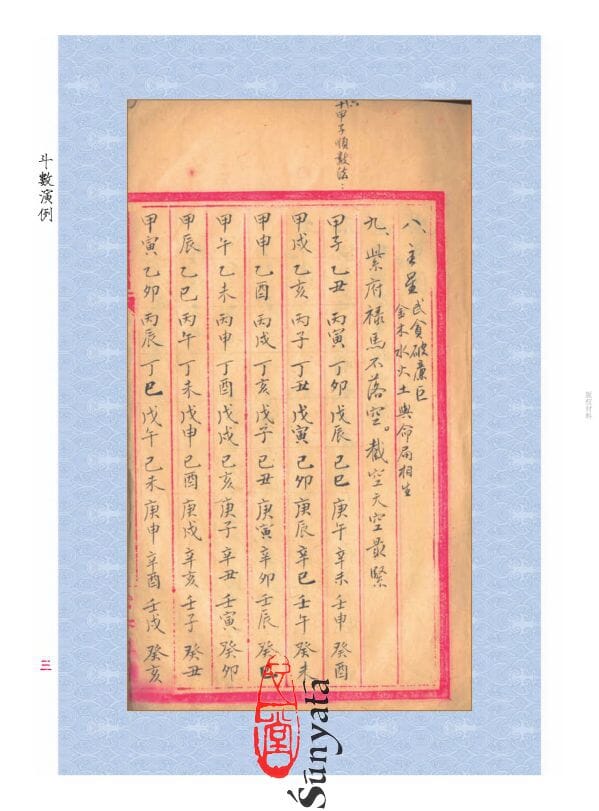 斗數演例
六十甲子順數法：
八、主星武貪破廉巨
金木水火土與命局相生
九、紫府祿馬不落空。截空天空最緊
甲子 乙丑 丙寅 丁卯 戊辰 己巳 庚午 辛未 壬申 癸酉
甲戌 乙亥 丙子 丁丑 戊寅 己卯 庚辰 辛巳 壬午 癸未
甲申 乙酉 丙戌 丁亥 戊子 己丑 庚寅 辛卯 壬辰 癸巳
甲午 乙未 丙申 丁酉 戊戌 己亥 庚子 辛丑 壬寅 癸卯
甲辰 乙巳 丙午 丁未 戊申 己酉 庚戌 辛亥 壬子 癸丑
甲寅 乙卯 丙辰 丁巳 戊午 己未 庚申 辛酉 壬戌 癸亥
三
心一堂
Śūnyatā
版权材料